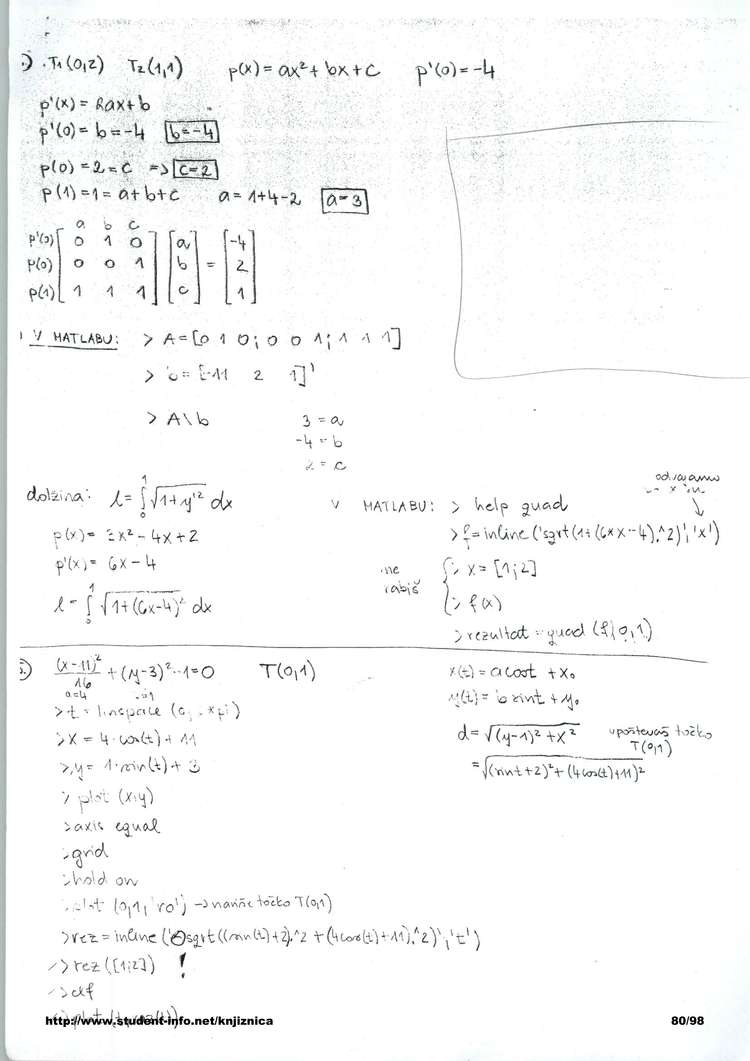 .) . T1(0,2) T2(1,1) p(x) = ax² + bx + c p'(0) = -4
p'(x) = 2ax+b
p'(0) = b = -4 b = -4
p(0) = 2 = c => c = 2
p(1) = 1 = a + b + c a = 1+4-2 a = 3
a b c
p'(0) [ 0 1 0 ] [ a ] = [ -4 ]
p(0) [ 0 0 1 ] [ b ] = [ 2 ]
p(1) [ 1 1 1 ] [ c ] = [ 1 ]
V MATLABU: > A = [0 1 0; 0 0 1; 1 1 1]
> b = [-11 2 1]'
> A\b 3 = a
-4 = b
2 = c
dolžina: l = ∫₀¹ √(1+y'²) dx
p(x) = 3x² - 4x + 2
p'(x) = 6x - 4
l = ∫₀¹ √(1+(6x-4)²) dx
V MATLABU: > help quad
> f = inline ('sqrt(1+(6*x-4).^2)','x')
ne rabiš
> x = [1;2]
> f(x)
> rezultat = quad (f,0,1)
5.) (x-11)²/16 + (y-3)² - 1 = 0 T(0,1)
a=4
> t = linspace
> x = 4·cos(t) + 11
> y = 1·sin(t) + 3
> plot (x,y)
> axis equal
> grid
> hold on
plot (0,1,'ro') -> nariše točko T(0,1)
> rez = inline ('sqrt((sin(t)+2).^2 + (4cos(t)+11).^2)','t')
> rez ([1;2]) !
> clf
x(t) = a cost + x₀
y(t) = b sint + y₀
d = √((y-1)² + x²) upoštevaš točko
T(0,1)
= √((sint+2)² + (4cos(t)+11)²)
http://www.student-info.net/knjiznica 80/98